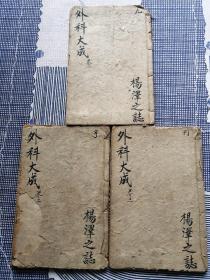 外科大成
楊澤之誌
外科大成
楊澤之誌
外科大成
楊澤之誌